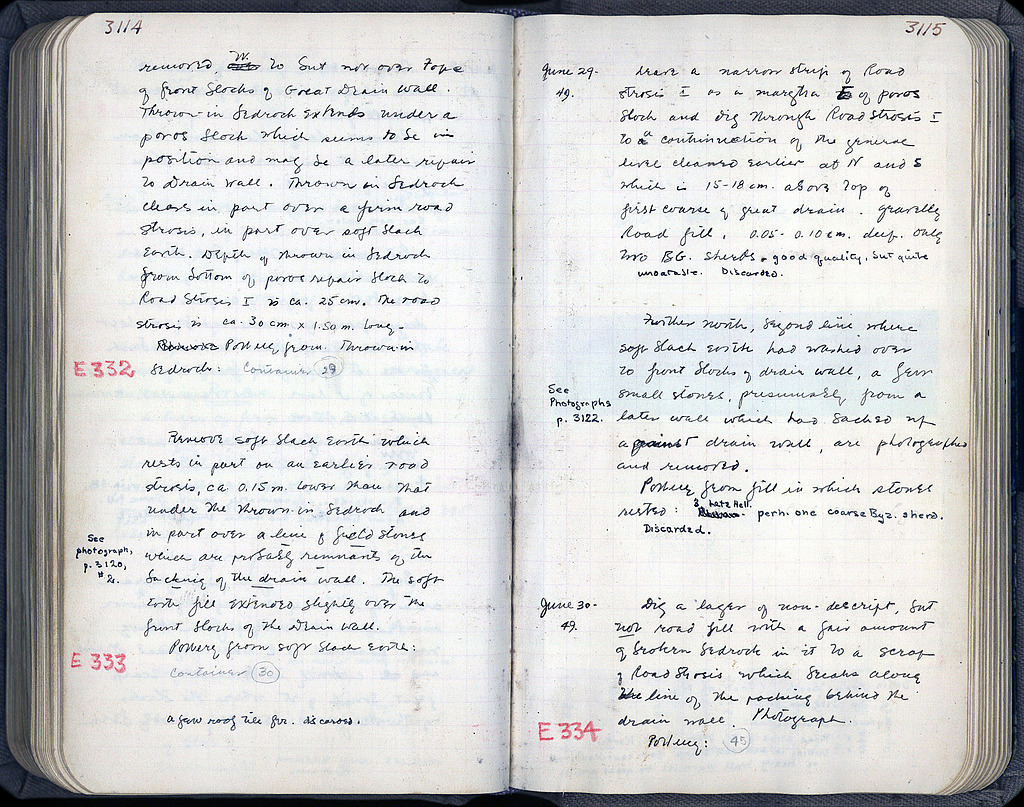 3114
removed, W. to but not over tops
of front blocks of Great Drain Wall.
Thrown-in bedrock extends under a
poros block which seems to be in
position and may be a later repair
to Drain Wall. Thrown in bedrock
clears in part over a firm road
strosis, in part over soft black
earth. Depth of thrown in bedrock
from bottom of poros repair block to
Road Strosis I is ca. 25 cm. The road
strosis is ca. 30 cm x 1.50 m. long.
Pottery from Thrown-in
E 332
bedrock: Container 29
Remove soft black earth which
rests in part on an earlier road
strosis, ca 0.15 m lower than that
under the thrown in bedrock and
in part over a line of field stones
which are probably remnants of the
backing of the drain wall. The soft
earth fill extended slightly over the
front blocks of the Drain Wall.
See
photograph,
p. 3120,
#2.
Pottery from soft black earth:
E 333
Container 30
a few roof tile frr. discarded.
3115
June 29-
49.
Leave a narrow strip of Road
strosis I as a margin E of poros
block and dig through Road Strosis I
to a continuation of the general
level cleaned earlier at N and S
which is 15-18 cm. above top of
first course of great drain. Gravelly
Road fill, 0.05-0.10 cm. deep. Only
two BG. sherds, good quality, but quite
undatable. Discarded.
Further north, beyond line where
soft black earth had washed over
to front blocks of drain wall, a few
small stones, presumably from a
later wall which had backed up
against drain wall, are photographed
and removed.
See
Photographs
p. 3122.
Pottery from fill in which stones
rested: 3 Late Hell. perh. one coarse Byz. sherd.
Discarded.
June 30-
49.
Dig a layer of non-descript, but
not road fill with a fair amount
of broken bedrock in it to a scrap
of Road Strosis which breaks along
the line of the packing behind the
drain wall. Photograph.
E 334
Pottery: 45